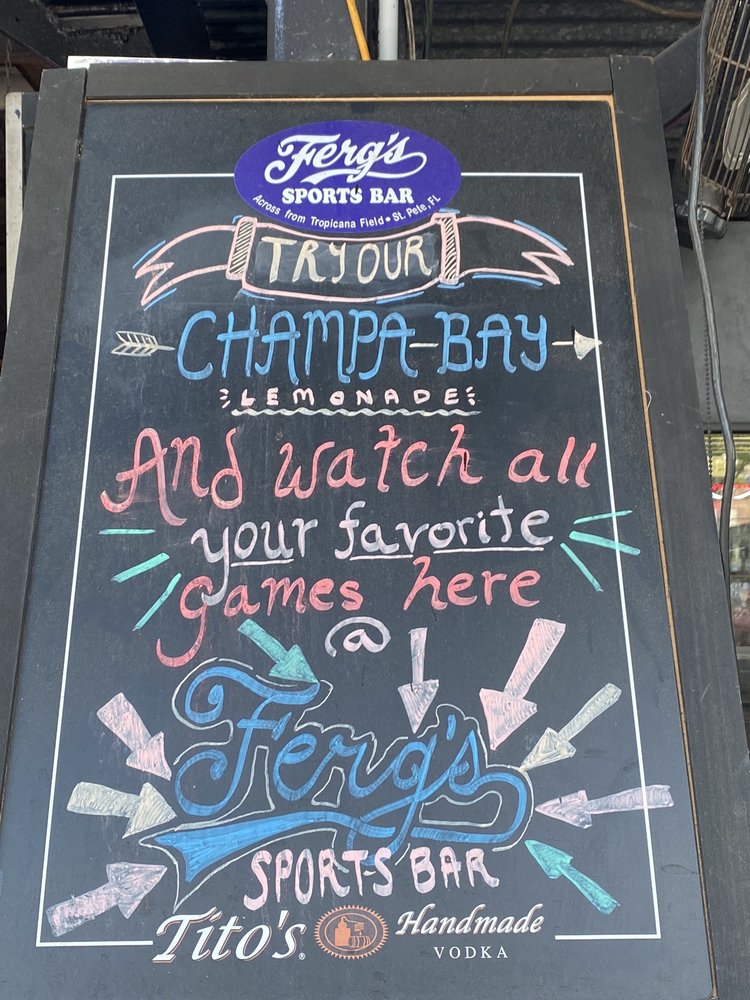 Ferg's
SPORTS BAR
Across from Tropicana Field • St. Pete, FL
TRY OUR
CHAMPA-BAY
LEMONADE
And watch all
your favorite
games here
@
Ferg's
SPORT-S BAR
Tito's® Handmade
VODKA